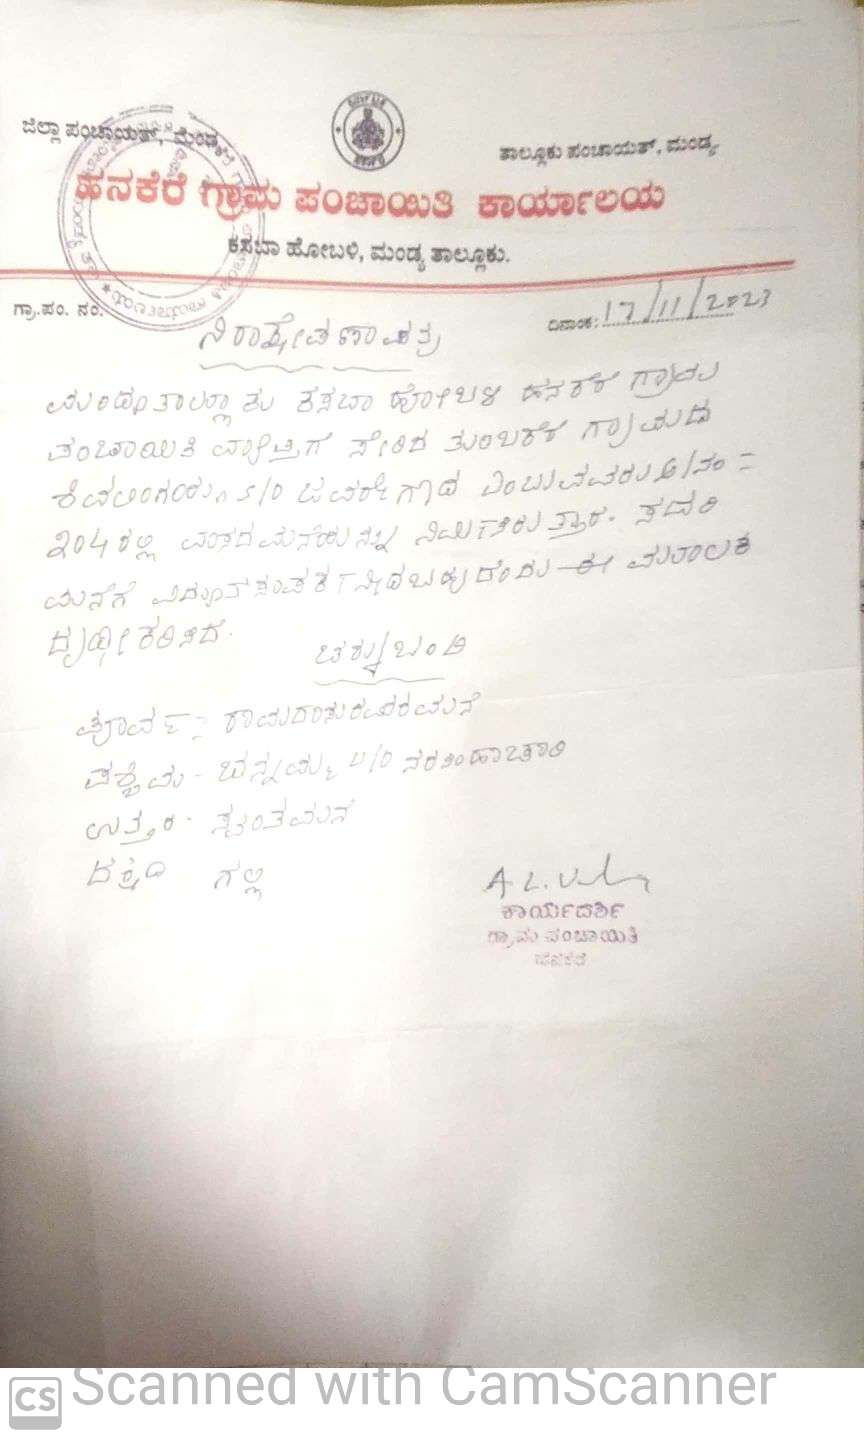 ಜಿಲ್ಲಾ ಪಂಚಾಯತ್, ಮಂಡ್ಯ
ತಾಲ್ಲೂಕು ಪಂಚಾಯತ್, ಮಂಡ್ಯ
ಹನಕೆರೆ ಗ್ರಾಮ ಪಂಚಾಯಿತಿ ಕಾರ್ಯಾಲಯ
ಕಸಬಾ ಹೋಬಳಿ, ಮಂಡ್ಯ ತಾಲ್ಲೂಕು.
ಗ್ರಾ.ಪಂ. ನಂ. ದಿನಾಂಕ: 17/11/2023
ನಿರಾಕ್ಷೇಪಣಾ ಪತ್ರ
ಮಂಡ್ಯ ತಾಲ್ಲೂಕು ಕಸಬಾ ಹೋಬಳಿ ಹನಕೆರೆ ಗ್ರಾಮ
ಪಂಚಾಯಿತಿ ವ್ಯಾಪ್ತಿಗೆ ಸೇರಿದ ತುಂಬಕೆರೆ ಗ್ರಾಮದ
ಶಿವಲಿಂಗಯ್ಯ S/O ಜವರೇಗೌಡ ಎಂಬುವವರು
204 ರಲ್ಲಿ ವಾಸದ ಮನೆಯನ್ನು ನಿರ್ಮಿಸಿರುತ್ತಾರೆ. ಸದರಿ
ಮನೆಗೆ ವಿದ್ಯುತ್ ಸಂಪರ್ಕ ನೀಡಬಹುದೆಂದು ಈ ಮೂಲಕ
ದೃಢೀಕರಿಸಿದೆ.
ಚಕ್ಕುಬಂದಿ
ಪೂರ್ವ :- ರವರ ಮನೆ
ಪಶ್ಚಿಮ - ಚನ್ನಮ್ಮ W/O ನರಸಿಂಹಾಚಾರಿ
ಉತ್ತರ - ಸ್ವಂತ ಮನೆ
ದಕ್ಷಿಣ ಗಲ್ಲಿ
ಕಾರ್ಯದರ್ಶಿ
ಗ್ರಾಮ ಪಂಚಾಯಿತಿ
ಹನಕೆರೆ
CS Scanned with CamScanner